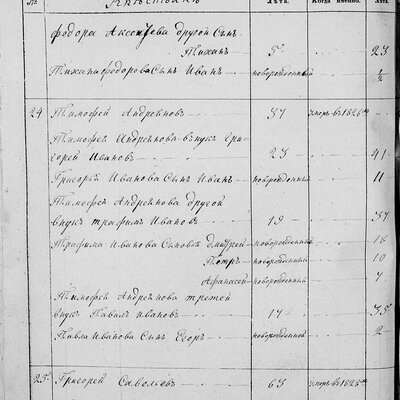 № МѢЩАНЕ Лѣта. Когда именно. Лѣта.
Федора Аксентьева другой сынъ
Тихан 5 23
Тихана Федорова Сынъ Иванъ новорожденный ½
24 Тимофей Андреяновъ 57 умеръ въ 1826
Тимофея Андреянова внукъ Гри
горей Ивановъ 23 41
Григорья Иванова Сынъ Иванъ новорожденный 11
Тимофея Андреянова другой
внукъ трафимъ Ивановъ 19 37
Трафима Иванова Сыновья Дмитрей новорожденный 18
Петръ новорожденный 10
Афанасей новорожденный 7
Тимофея Андреянова третей
внукъ Павилъ Ивановъ 17 35
Павла Иванова Сынъ Егоръ новорожденной 2
25 Григорей Савельевъ 63 умеръ въ 1828